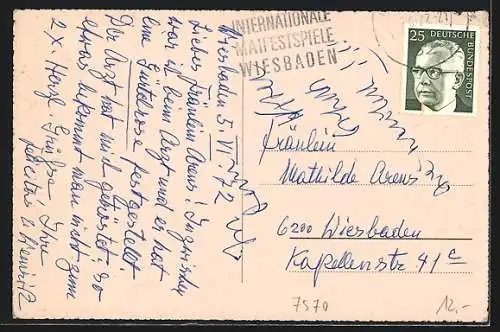 INTERNATIONALE
MAIFESTSPIELE
WIESBADEN
25
DEUTSCHE
BUNDESPOST
Wiesbaden 5. VI. 72
Liebes Fräulein Arens! Inzwischen
war ich beim Arzt und er hat
eine festgestellt!
Der Arzt hat mich getröstet: so
etwas bekommt man nicht zum
2 x. Herzl. Grüsse Ihre
Fräulein
Mathilde Arens
6200 Wiesbaden
Kapellenstr 41c
7570
12,-